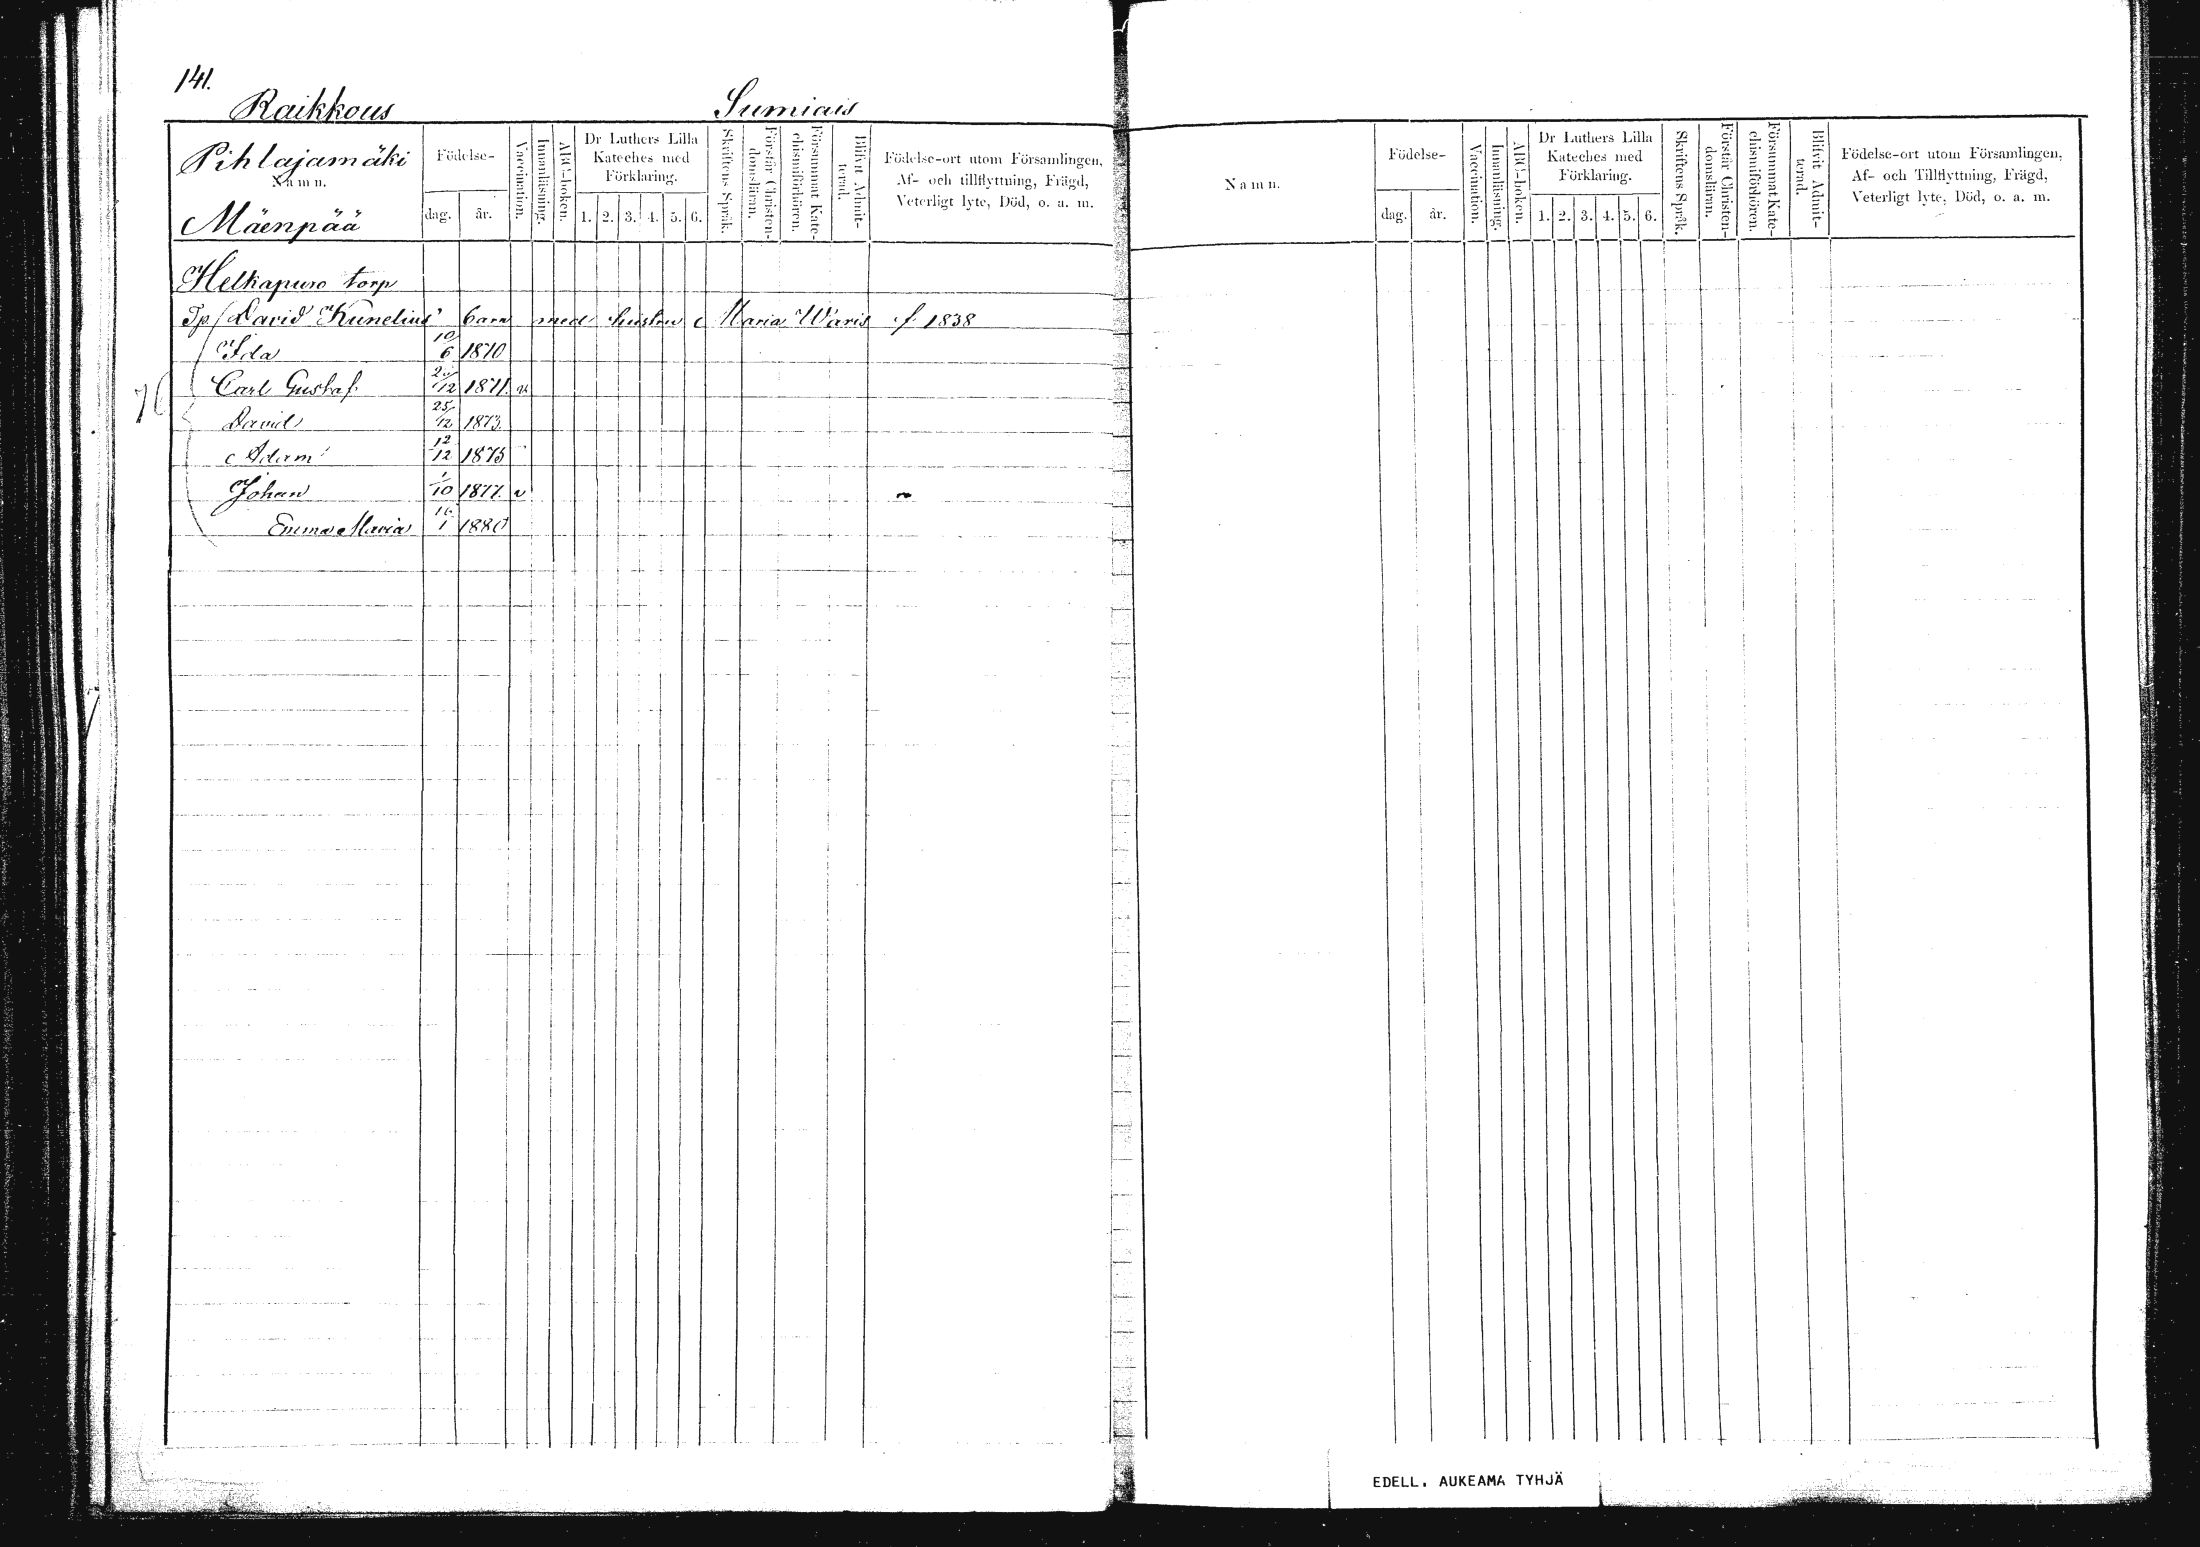 141.
Raikkous Sumiais
Pihlajamäki
Namn.
Mäenpää
Födelse-
dag. år.
Vaccination.
Innanläsning.
ABC-boken.
Dr Luthers Lilla
Kateches med
Förklaring.
1. 2. 3. 4. 5. 6.
Skriftens Språk.
Förstår Christen-
domsläran.
Försummat Kate-
chismiförhören.
Blifvit Admit-
terad.
Födelse-ort utom Församlingen,
Af- och tillflyttning, Frägd,
Veterligt lyte, Död, o. a. m.
Helkapuro torp
Tp. David Kunelius' barn med hustru Maria Waris f. 1838
Ida 10/6 1870
Carl Gustaf 12 1871. v
David 25/12 1873.
Adam 12/12 1875
Johan 1/10 1877. v
Emma Maria 16/1 1880
Namn.
Födelse-
dag. år.
Vaccination.
Innanläsning.
ABC-boken.
Dr Luthers Lilla
Kateches med
Förklaring.
1. 2. 3. 4. 5. 6.
Skriftens Språk.
Förstår Christen-
domsläran.
Försummat Kate-
chismiförhören.
Blifvit Admit-
terad.
Födelse-ort utom Församlingen,
Af- och Tillflyttning, Frägd,
Veterligt lyte, Död, o. a. m.
EDELL. AUKEAMA TYHJÄ